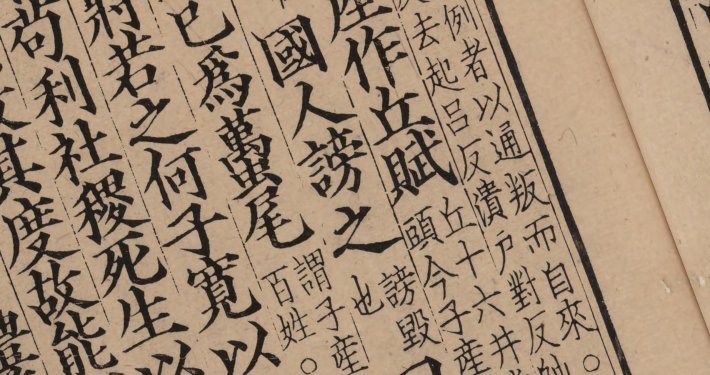 例者以通叛而自來。
去起呂反潰戶對反
產作丘賦
丘十六井
頭今子產
國人謗之
謗毀
也
已爲蠆尾
謂子產
百姓。
將若之何子寬以
苟利社稷死生以
其度故能